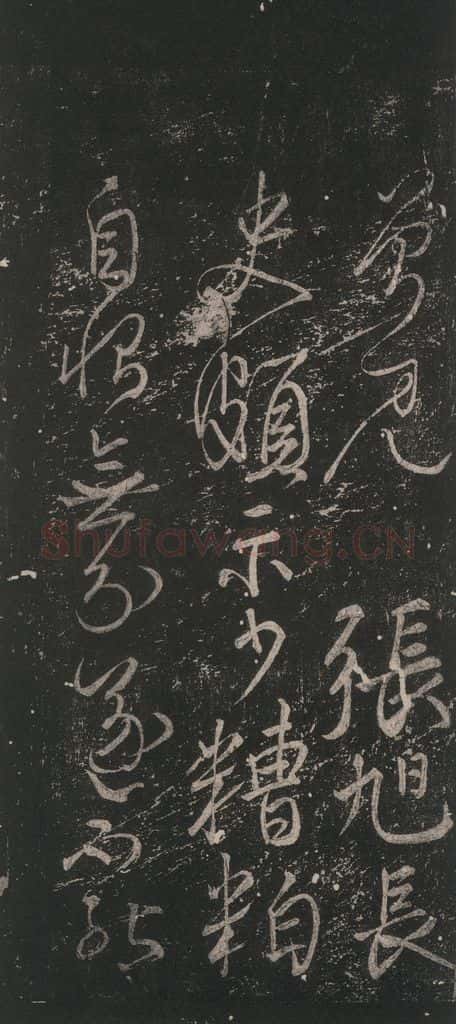 曾見張旭長
史頗示少糟粕
自恨無分遂不能
Shufawang.CN